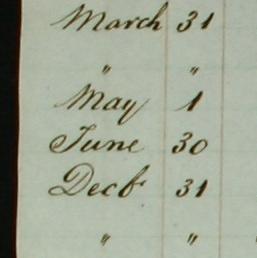 March 31
" "
May 1
June 30
Decb 31
" "